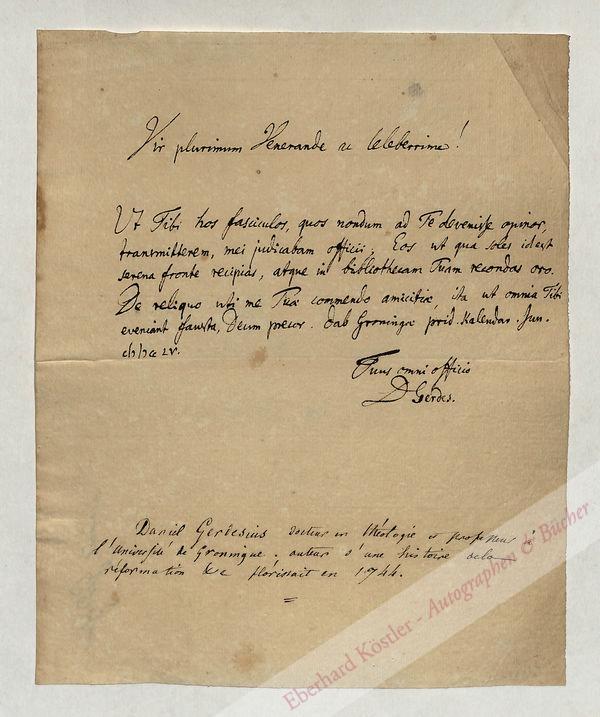 Vir plurimum Venerande ac Celeberrime!
Ut Tibi hos fasciculos, quos nondum ad Te devenisse opinor,
transmitterem, mei judicabam officii. Eos ut qua soles id est
serena fronte recipias, atque in bibliothecam Tuam recondas oro.
De reliquo uti me Tuæ commendo amicitiæ, ita ut omnia Tibi
eveniant fausta, Deum precor. dab Groningæ prid. Kalendar. Jun.
LV.
Tuus omni officio
DGerdes.
Daniel Gerdesius docteur en théologie et professeur à
l'université de Groningue. auteur d'une histoire de la
réformation &c florissait en 1744.
=
Eberhard Köstler - Autographen & Bücher